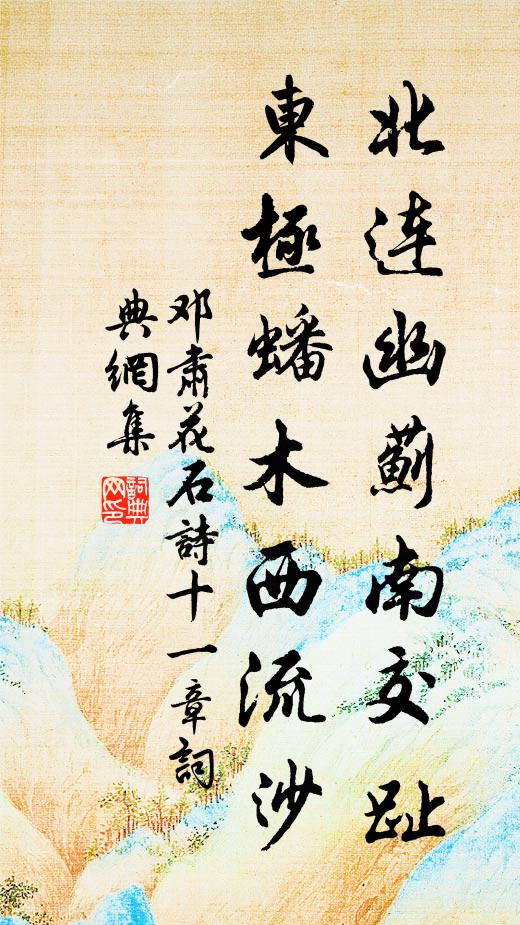 北连幽薊南交趾
東極蟠木西流沙
邓肅花石詩十一章詞
典網集
詞典網印